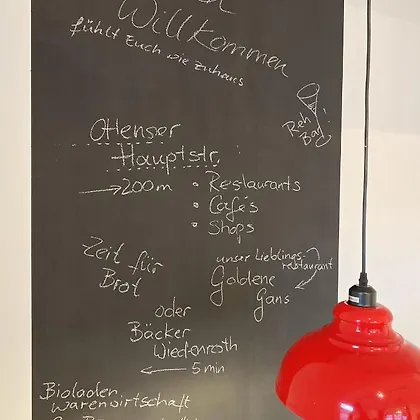 Willkommen
fühlt Euch wie zuhaus
Reh
Bar
Ottenser
Hauptstr.
→ 200m
• Restaurants
• Cafés
• Shops
Zeit für
Brot
unser Lieblings-
restaurant
Goldene
Gans
oder
Bäcker
Wiedenroth
← 5 min
Bioladen
Warenwirtschaft